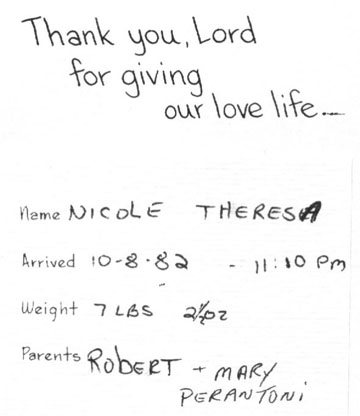 Thank you, Lord
for giving
our love life...
Name NICOLE THERESA
Arrived 10-8-82 - 11:10 PM
Weight 7 LBS 2½oz
Parents ROBERT + MARY
PERANTONI